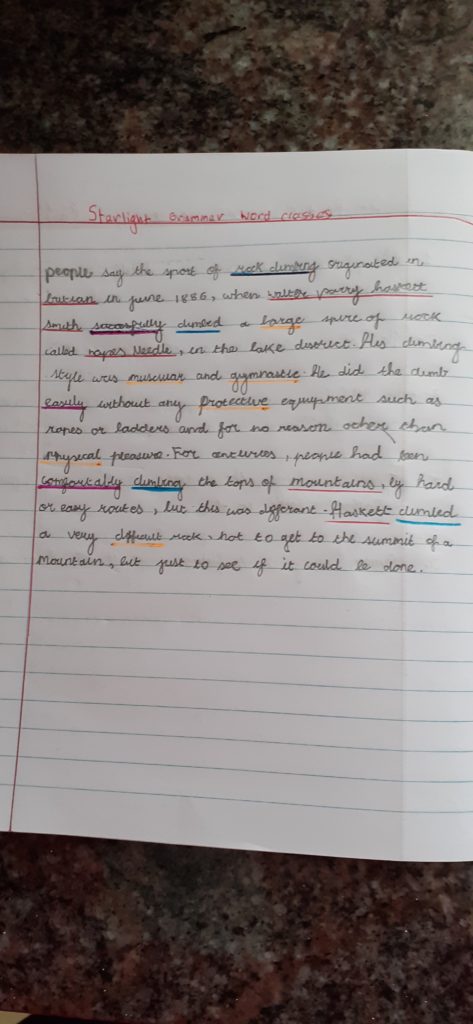 Starlight Grammar Word classes
people say the sport of rock climbing originated in
britian in june 1886, when walter parry haskett
smith successfully climbed a large spire of rock
called napes Needle, in the lake district. His climbing
style was muscular and gymnastic. He did the climb
easily without any protective equipment such as
ropes or ladders and for no reason other than
physical pleasure. For centuries, people had been
comfortably climbing the tops of mountains, by hard
or easy routes, but this was differant. Haskett climbed
a very difficult rock not to get to the summit of a
mountain, but just to see if it could be done.